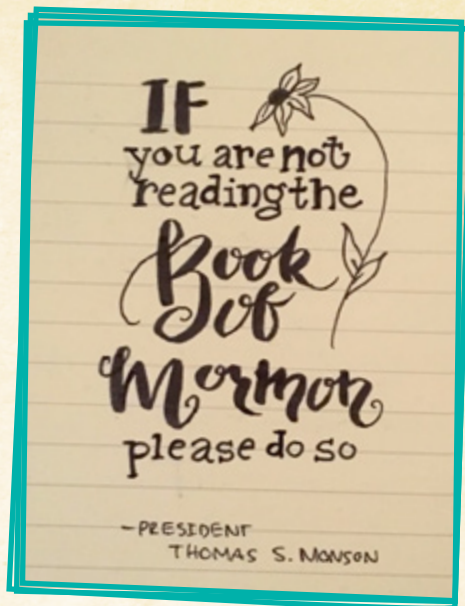 IF
you are not
reading the
Book
of
Mormon
please do so
-PRESIDENT
THOMAS S. MONSON